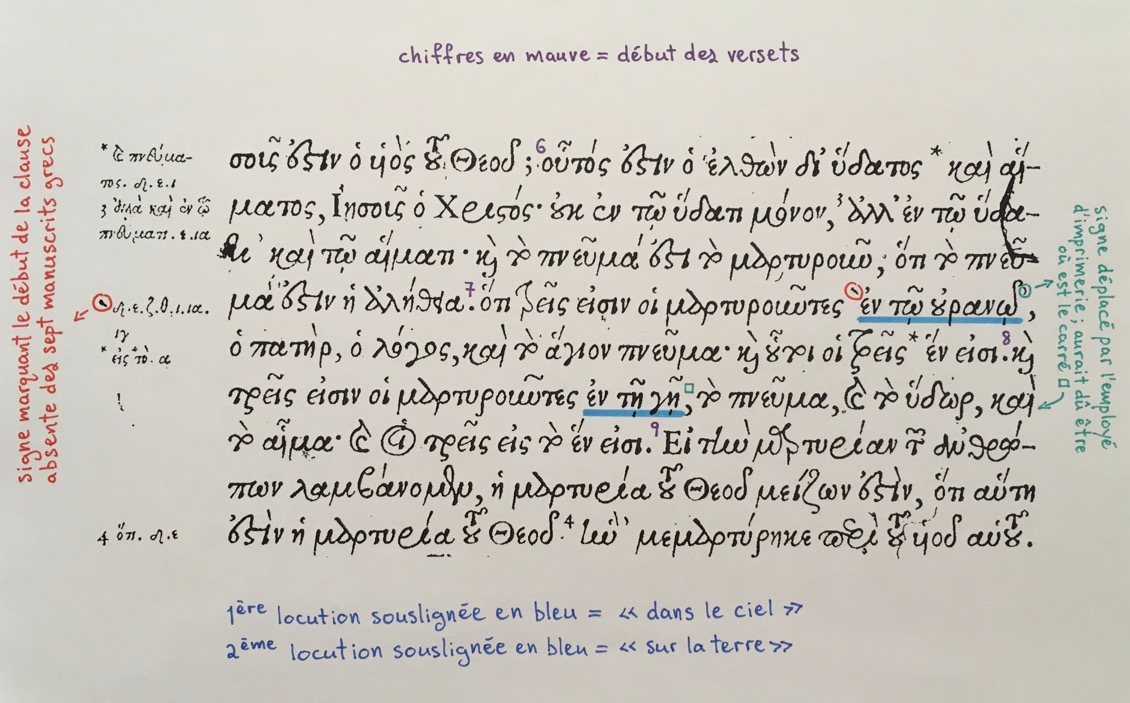 chiffres en mauve = début des versets
Signe marquant le début de la clause
absente des sept manuscrits grecs
* καὶ πνεύμα-
τος. δ. ε. ι
3 ἀλλὰ καὶ ἐν τῷ
πνεύματι. ε. ια
δ. ε. ζ. θ. ι. ια.
ιγ
* εἰς τὸ. α
4 ὅτι. δ. ε
σοῦς ἐστιν ὁ υἱὸς τοῦ Θεοῦ ; 6 οὗτός ἐστιν ὁ ἐλθὼν δι' ὕδατος * καὶ αἵ-
ματος, Ἰησοῦς ὁ Χριστός· οὐκ ἐν τῷ ὕδατι μόνον, 3 ἀλλ' ἐν τῷ ὕδα-
τι καὶ τῷ αἵματι· καὶ τὸ πνεῦμά ἐστι τὸ μαρτυροῦν, ὅτι τὸ πνεῦ-
μά ἐστιν ἡ ἀλήθεια. 7 ὅτι τρεῖς εἰσιν οἱ μαρτυροῦντες ἐν τῷ οὐρανῷ,
ὁ πατήρ, ὁ λόγος, καὶ τὸ ἅγιον πνεῦμα· καὶ οὗτοι οἱ τρεῖς * ἕν εἰσι. 8 καὶ
τρεῖς εἰσιν οἱ μαρτυροῦντες ἐν τῇ γῇ, τὸ πνεῦμα, καὶ τὸ ὕδωρ, καὶ
τὸ αἷμα· καὶ οἱ τρεῖς εἰς τὸ ἕν εἰσι. 9 Εἰ τὴν μαρτυρίαν τῶν ἀνθρώ-
πων λαμβάνομεν, ἡ μαρτυρία τοῦ Θεοῦ μείζων ἐστίν, ὅτι αὕτη
ἐστὶν ἡ μαρτυρία τοῦ Θεοῦ· 4 ἣν μεμαρτύρηκε περὶ τοῦ υἱοῦ αὐτοῦ.
Signe déplacé par l'employé
d'imprimerie ; aurait dû être
où est le carré □
1ère locution souslignée en bleu = « dans le ciel »
2ème locution souslignée en bleu = « sur la terre »